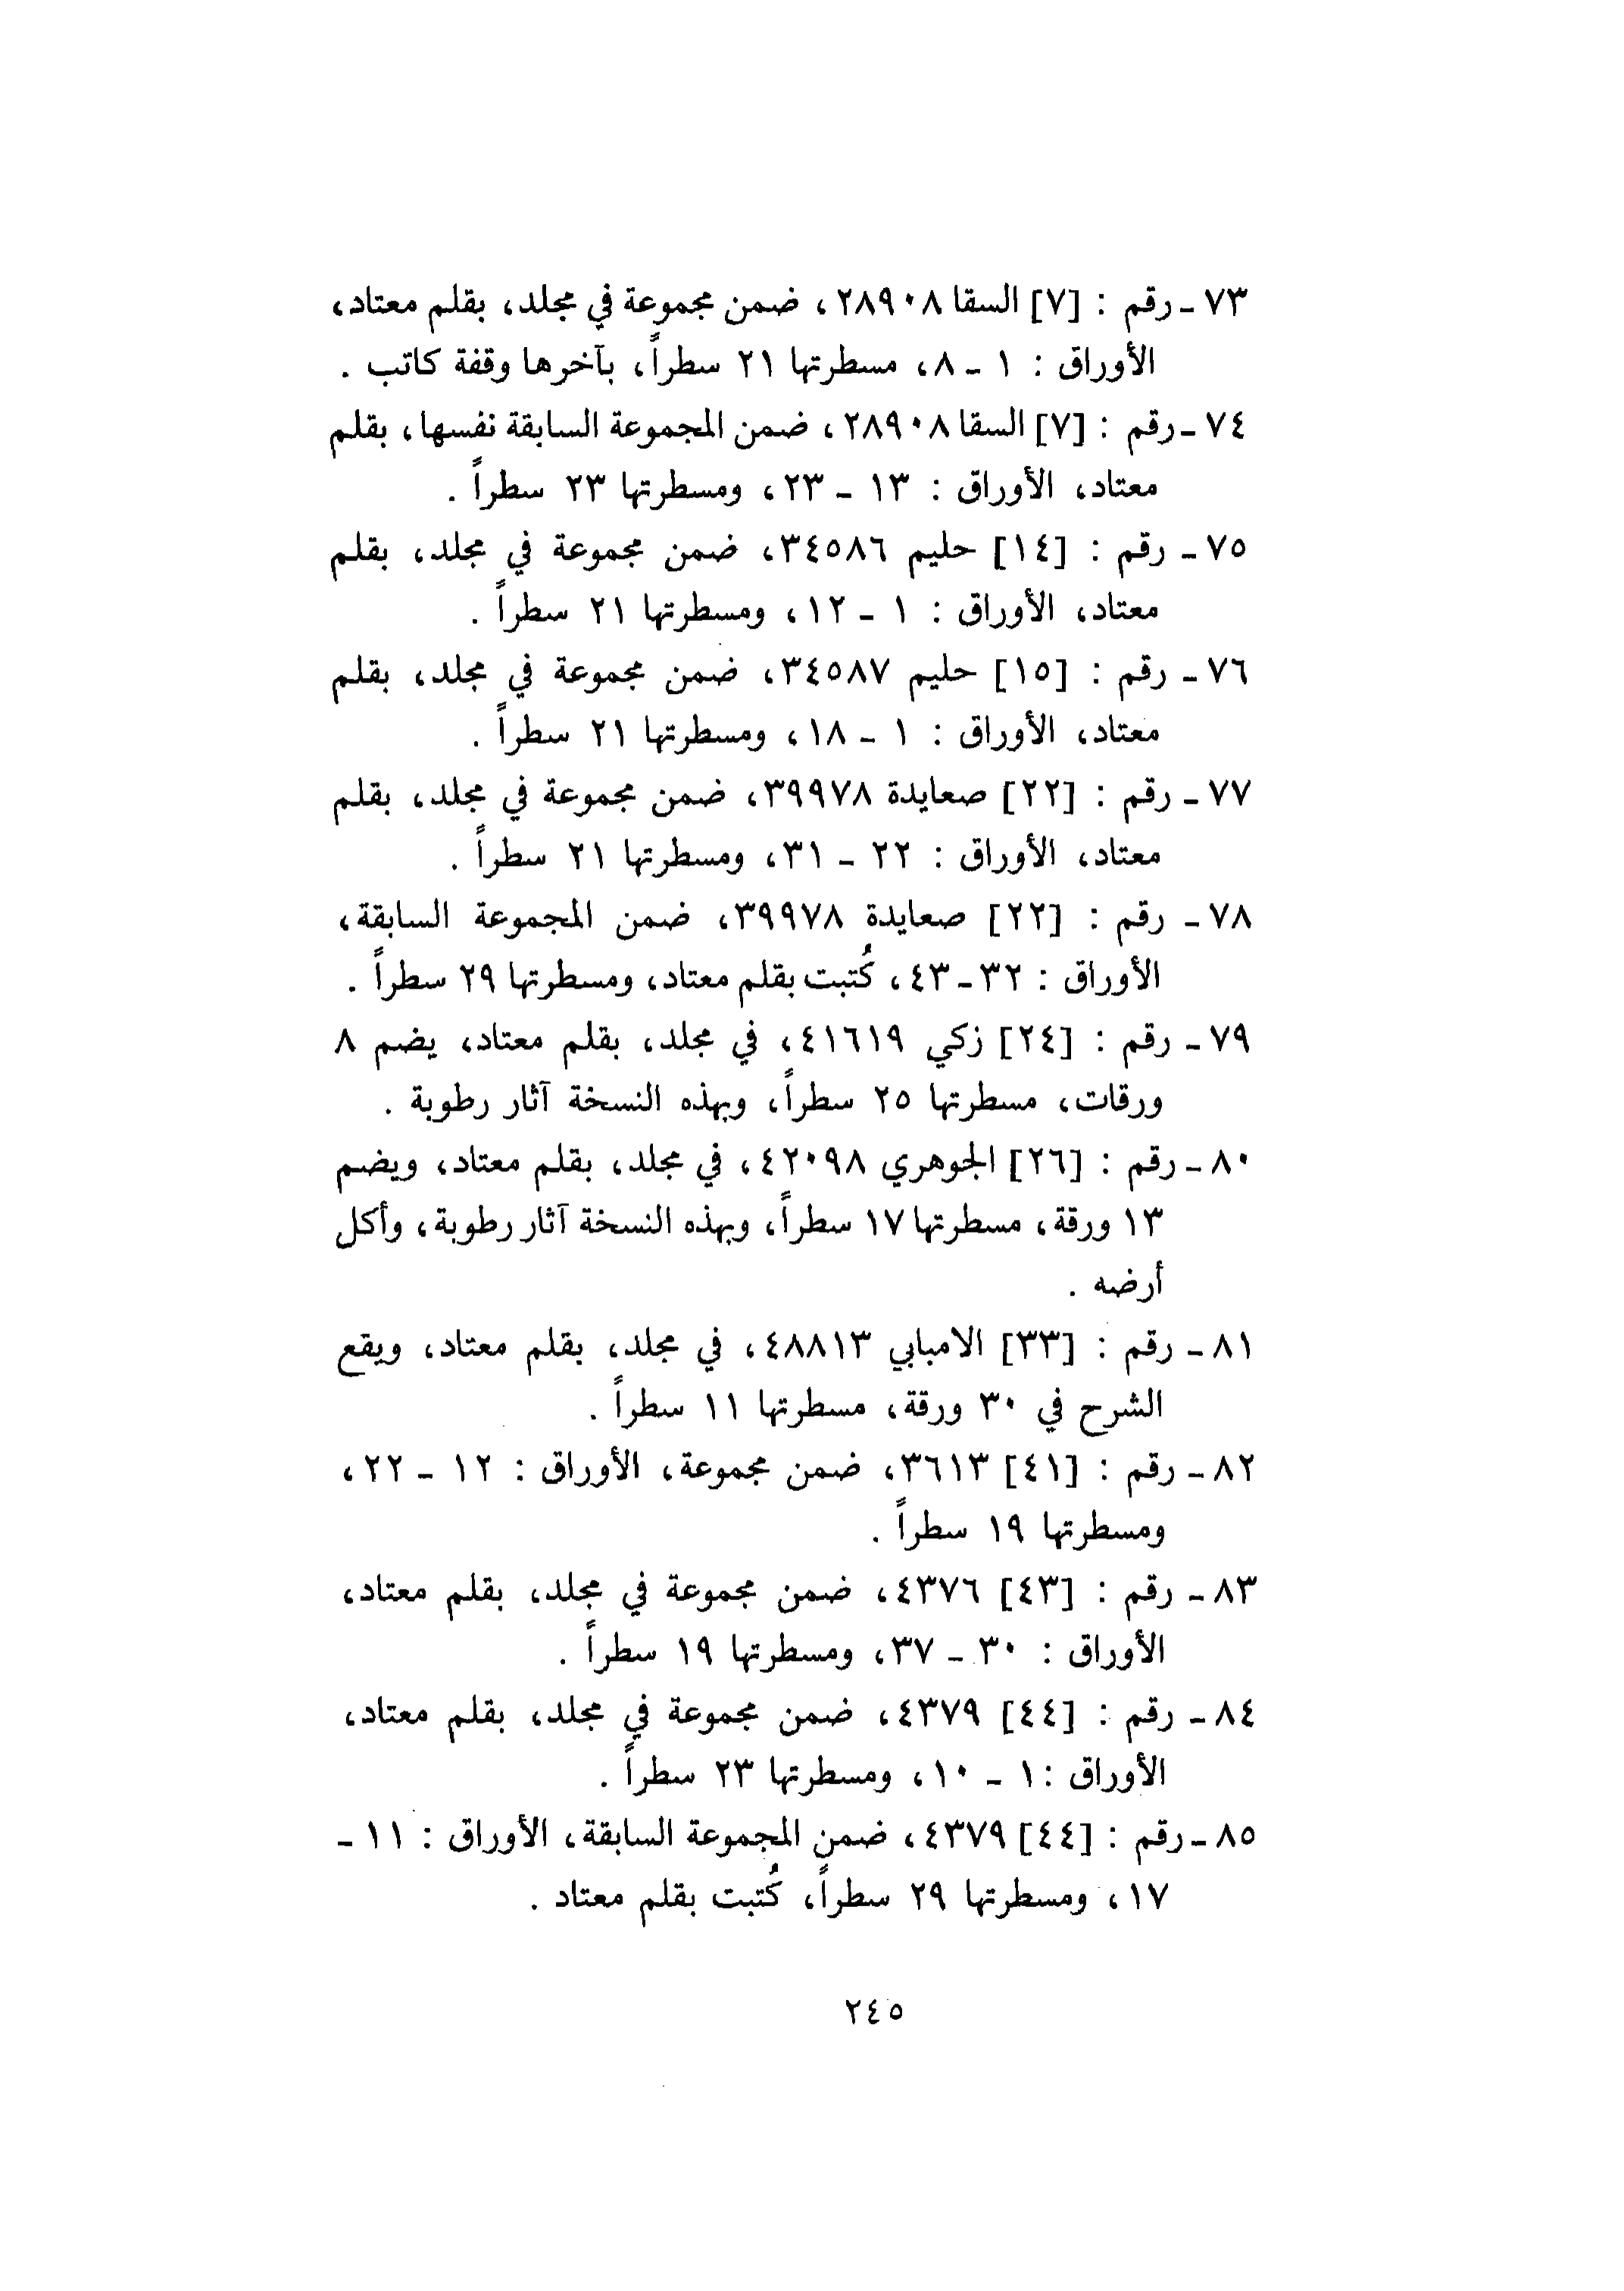 ٧٣ ـ رقم : [٧] السقا ٢٨٩٠٨، ضمن مجموعة في مجلد، بقلم معتاد،
الأوراق : ١ ـ ٨، مسطرتها ٢١ سطراً، بآخرها وقفة كاتب .
٧٤ ـ رقم : [٧] السقا ٢٨٩٠٨، ضمن المجموعة السابقة نفسها، بقلم
معتاد، الأوراق : ١٣ ـ ٢٣، ومسطرتها ٢٣ سطراً .
٧٥ ـ رقم : [١٤] حليم ٣٤٥٨٦، ضمن مجموعة في مجلد، بقلم
معتاد، الأوراق : ١ ـ ١٢، ومسطرتها ٢١ سطراً .
٧٦ ـ رقم : [١٥] حليم ٣٤٥٨٧، ضمن مجموعة في مجلد، بقلم
معتاد، الأوراق : ١ ـ ١٨، ومسطرتها ٢١ سطراً .
٧٧ ـ رقم : [٢٢] صعايدة ٣٩٩٧٨، ضمن مجموعة في مجلد، بقلم
معتاد، الأوراق : ٢٢ ـ ٣١، ومسطرتها ٢١ سطراً .
٧٨ ـ رقم : [٢٢] صعايدة ٣٩٩٧٨، ضمن المجموعة السابقة،
الأوراق : ٣٢ ـ ٤٣، كُتبت بقلم معتاد، ومسطرتها ٢٩ سطراً .
٧٩ ـ رقم : [٢٤] زكي ٤١٦١٩، في مجلد، بقلم معتاد، يضم ٨
ورقات، مسطرتها ٢٥ سطراً، وبهذه النسخة آثار رطوبة .
٨٠ ـ رقم : [٢٦] الجوهري ٤٢٠٩٨، في مجلد، بقلم معتاد، ويضم
١٣ ورقة، مسطرتها ١٧ سطراً، وبهذه النسخة آثار رطوبة، وأكل
أرضه .
٨١ ـ رقم : [٣٣] الامبابي ٤٨٨١٣، في مجلد، بقلم معتاد، ويقع
الشرح في ٣٠ ورقة، مسطرتها ١١ سطراً .
٨٢ ـ رقم : [٤١] ٣٦١٣، ضمن مجموعة، الأوراق : ١٢ ـ ٢٢،
ومسطرتها ١٩ سطراً .
٨٣ ـ رقم : [٤٣] ٤٣٧٦، ضمن مجموعة في مجلد، بقلم معتاد،
الأوراق : ٣٠ ـ ٣٧، ومسطرتها ١٩ سطراً .
٨٤ ـ رقم : [٤٤] ٤٣٧٩، ضمن مجموعة في مجلد، بقلم معتاد،
الأوراق : ١ ـ ١٠، ومسطرتها ٢٣ سطراً .
٨٥ ـ رقم : [٤٤] ٤٣٧٩، ضمن المجموعة السابقة، الأوراق : ١١ ـ
١٧، ومسطرتها ٢٩ سطراً، كُتبت بقلم معتاد .
٢٤٥